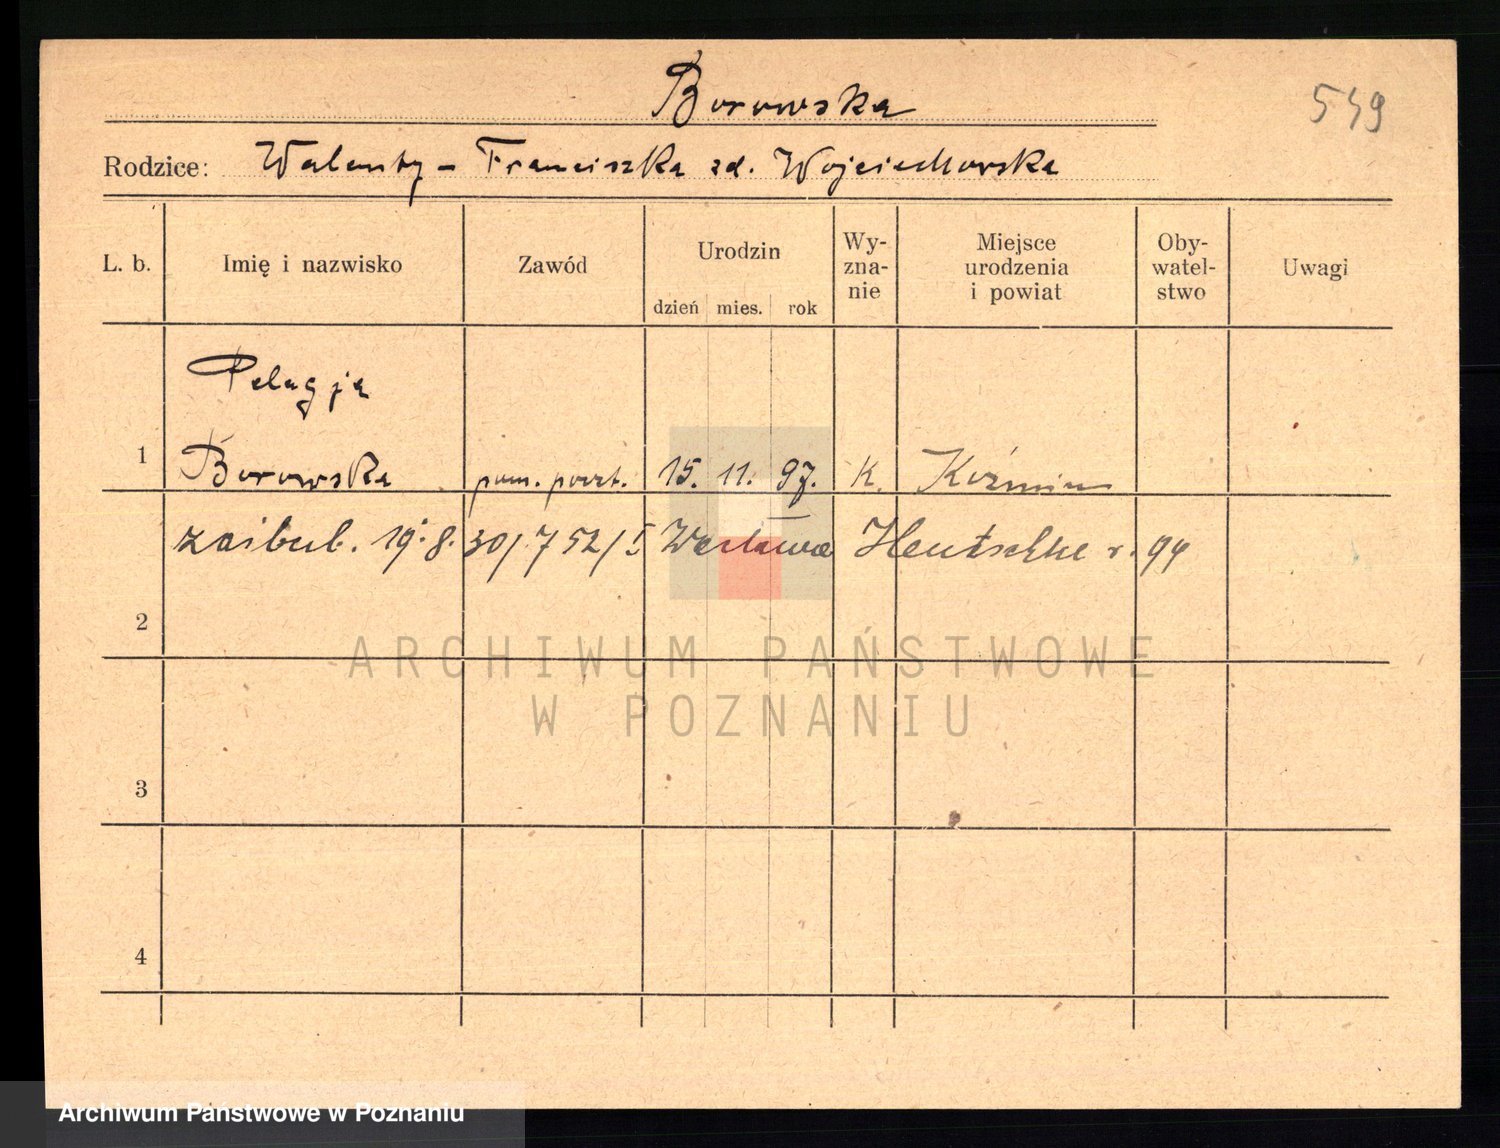 Borowska
549
Rodzice: Walenty - Franciszka zd. Wojciechowska
L. b. Imię i nazwisko Zawód Urodzin dzień mies. rok Wy-zna-nie Miejsce urodzenia i powiat Oby-watel-stwo Uwagi
Pelagja
1 Borowska pom. poczt. 15. 11. 97. K. Koźmin
19.8.30/752/I Hentschke r. 94
2
ARCHIWUM PAŃSTWOWE
W POZNANIU
3
4
Archiwum Państwowe w Poznaniu